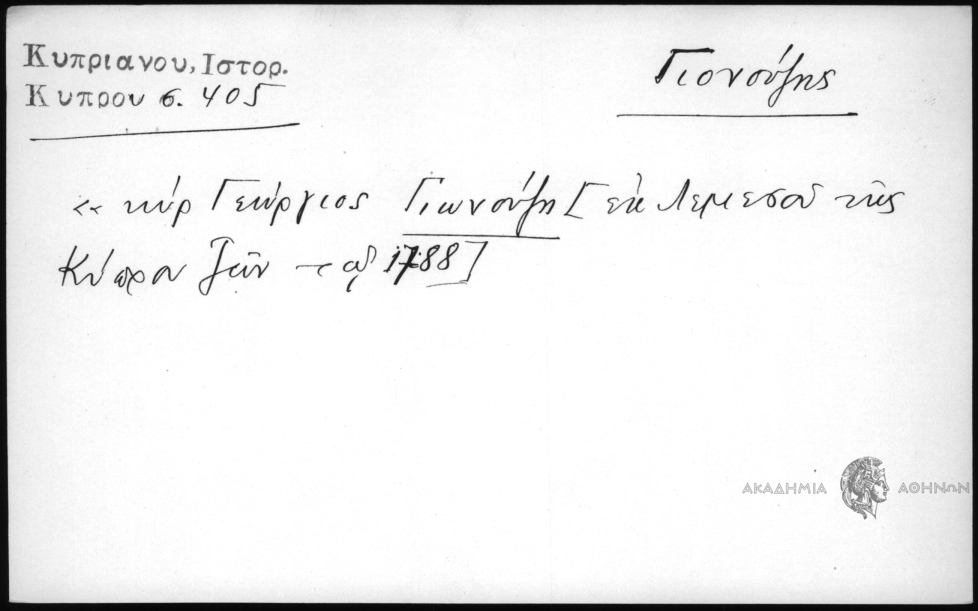 Κυπριανου, Ιστορ.
Κυπρου σ. 405
Γιονσούζης
«κύρ Γεώργιος Γιωνσούζη [ἐκ Λεμεσοῦ τῆς
Κύπρου ζῶν 1788]
ΑΚΑΔΗΜΙΑ ΑΘΗΝΩΝ